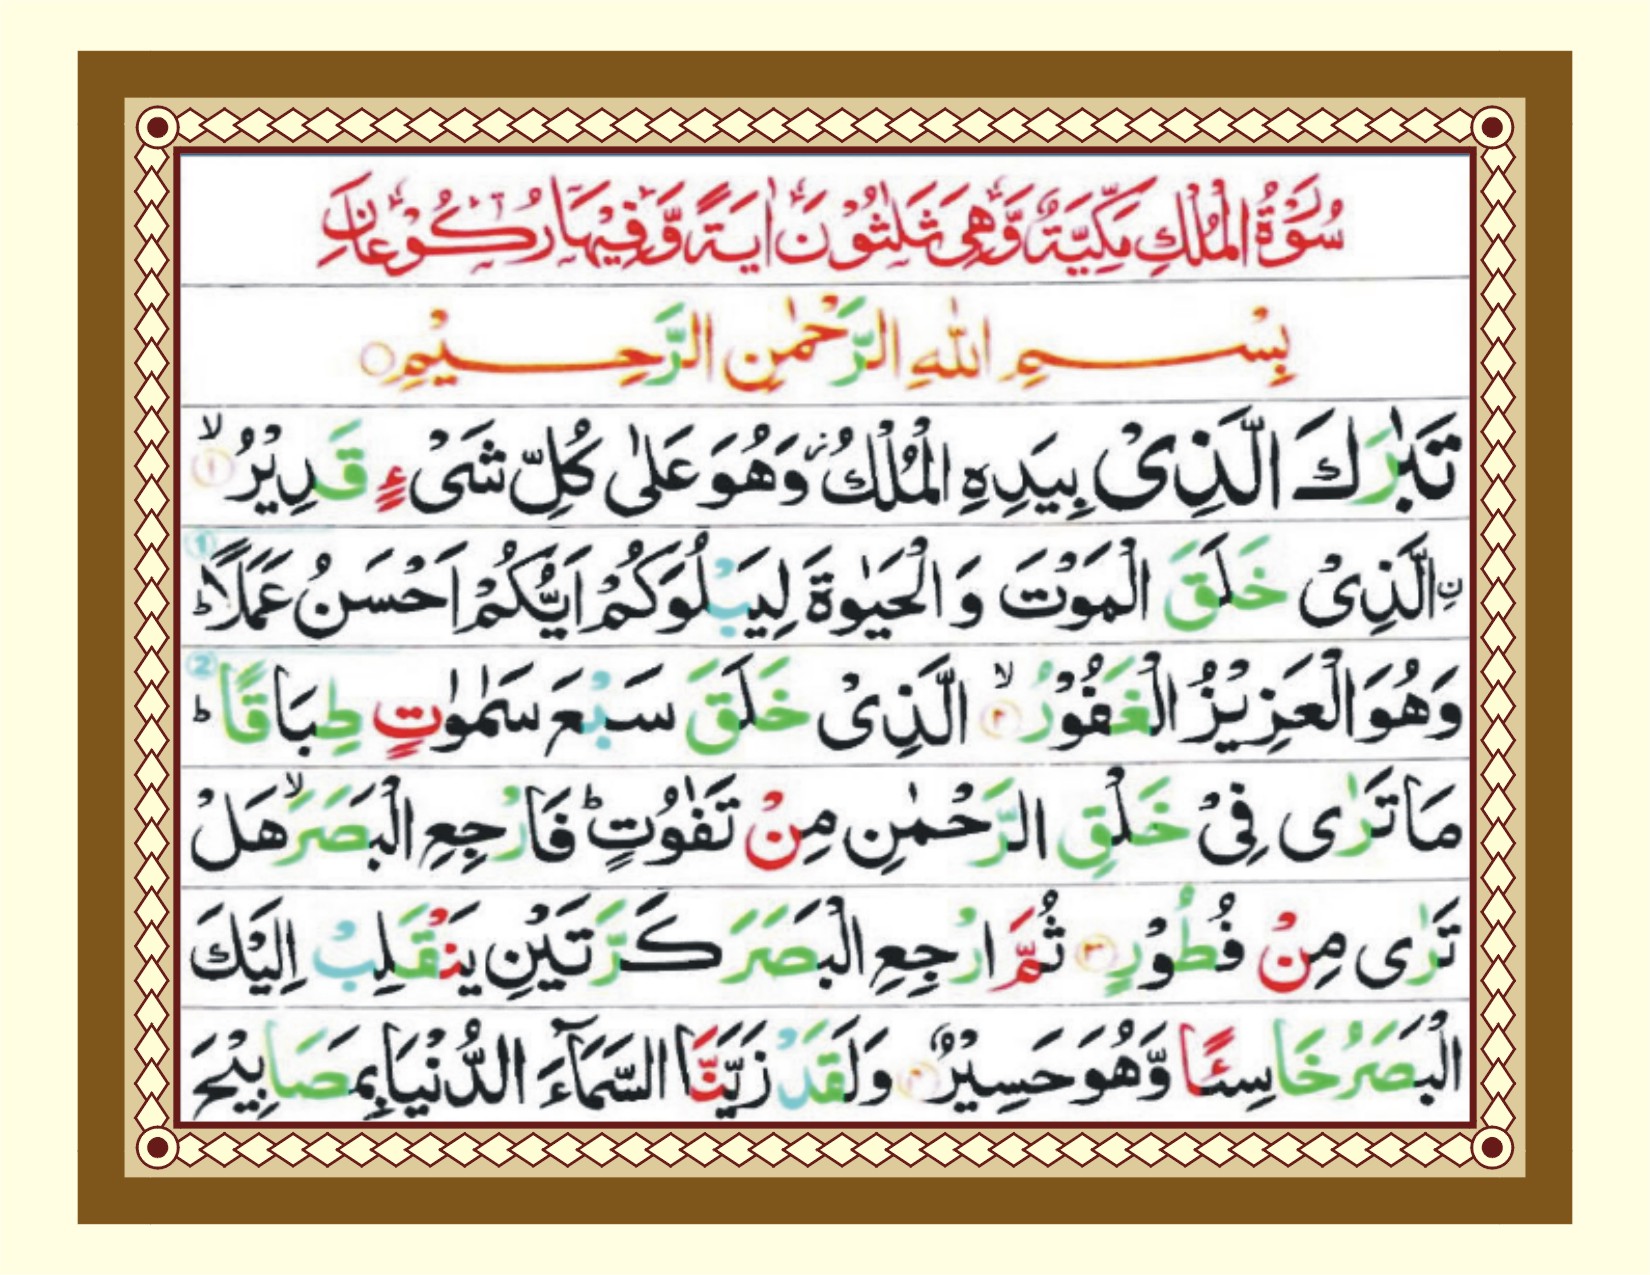 سُوْرَةُ الْمُلْكِ مَكِّيَّةٌ وَّهِيَ ثَلٰثُوْنَ اٰيَةً وَّفِيْهَا رُكُوْعَانِ
بِسْمِ اللّٰهِ الرَّحْمٰنِ الرَّحِيْمِ ○
تَبٰرَكَ الَّذِىْ بِيَدِهِ الْمُلْكُ ز وَهُوَ عَلٰى كُلِّ شَىْءٍ قَدِيْرُ ۙ ١
۟نِ الَّذِىْ خَلَقَ الْمَوْتَ وَ الْحَيٰوةَ لِيَبْلُوَكُمْ اَيُّكُمْ اَحْسَنُ عَمَلًا ؕ 1
وَهُوَ الْعَزِيْزُ الْغَفُوْرُ ۙ ٢ الَّذِىْ خَلَقَ سَبْعَ سَمٰوٰتٍ طِبَاقًا ؕ 2
مَا تَرٰى فِىْ خَلْقِ الرَّحْمٰنِ مِنْ تَفٰوُتٍ ؕ فَارْجِعِ الْبَصَرَ ۙ هَلْ
تَرٰى مِنْ فُطُوْرٍ ٣ ثُمَّ ارْجِعِ الْبَصَرَ كَرَّتَيْنِ يَنْقَلِبْ اِلَيْكَ
الْبَصَرُ خَاسِئًا وَّهُوَ حَسِيْرٌ ٤ وَلَقَدْ زَيَّنَّا السَّمَآءَ الدُّنْيَا بِمَصَابِيْحَ